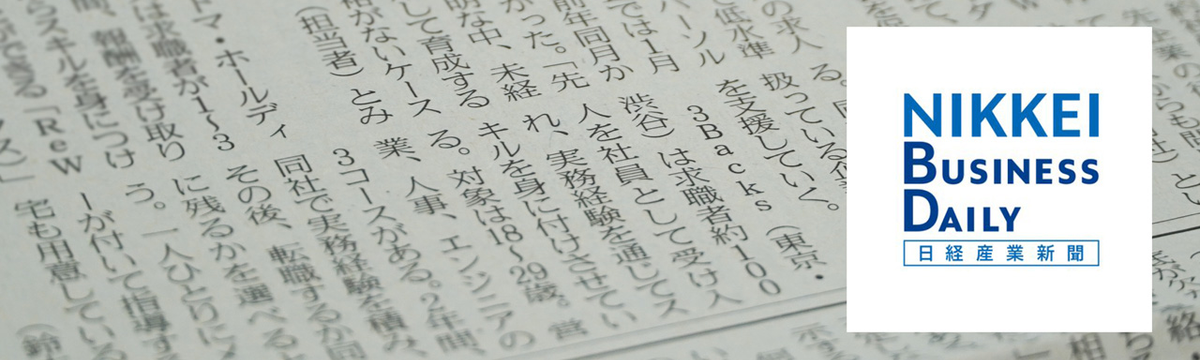 の求人
低水準
では1月
パーソル
前年同月か
かった。「先
明な中、未経
して育成する
格がないケース
(担当者)とみ
扱っている
を支援していく。
3Backs(東京・
渋谷)は求職者約100
人を社員として受け入
れ、実務経験を通してス
キルを身に付けさせてい
る。対象は18〜29歳。営
業、人事、エンジニアの
3コースがある。2年間、
同社で実務経験を積み、
その後、転職するか同
に残るかを選べる
う。一人ひとりに
ーが付いて指導す
宅も用意している
(鈴
ドマ・ホールディ
は求職者が1〜3
間、報酬を受け取り
らスキルを身につけ
ができる「ReW
ス」
NIKKEI
BUSINESS
DAILY
日経産業新聞